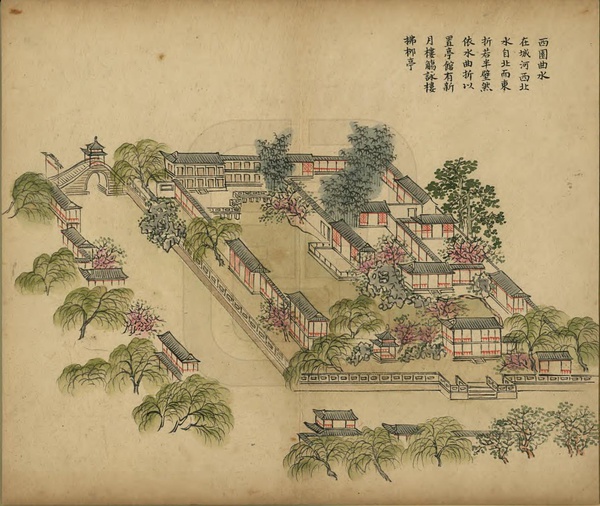 西園曲水
在城河西北
水自北而東
折若半璧然
依水曲折以
置亭館有新
月樓觴詠樓
拂柳亭